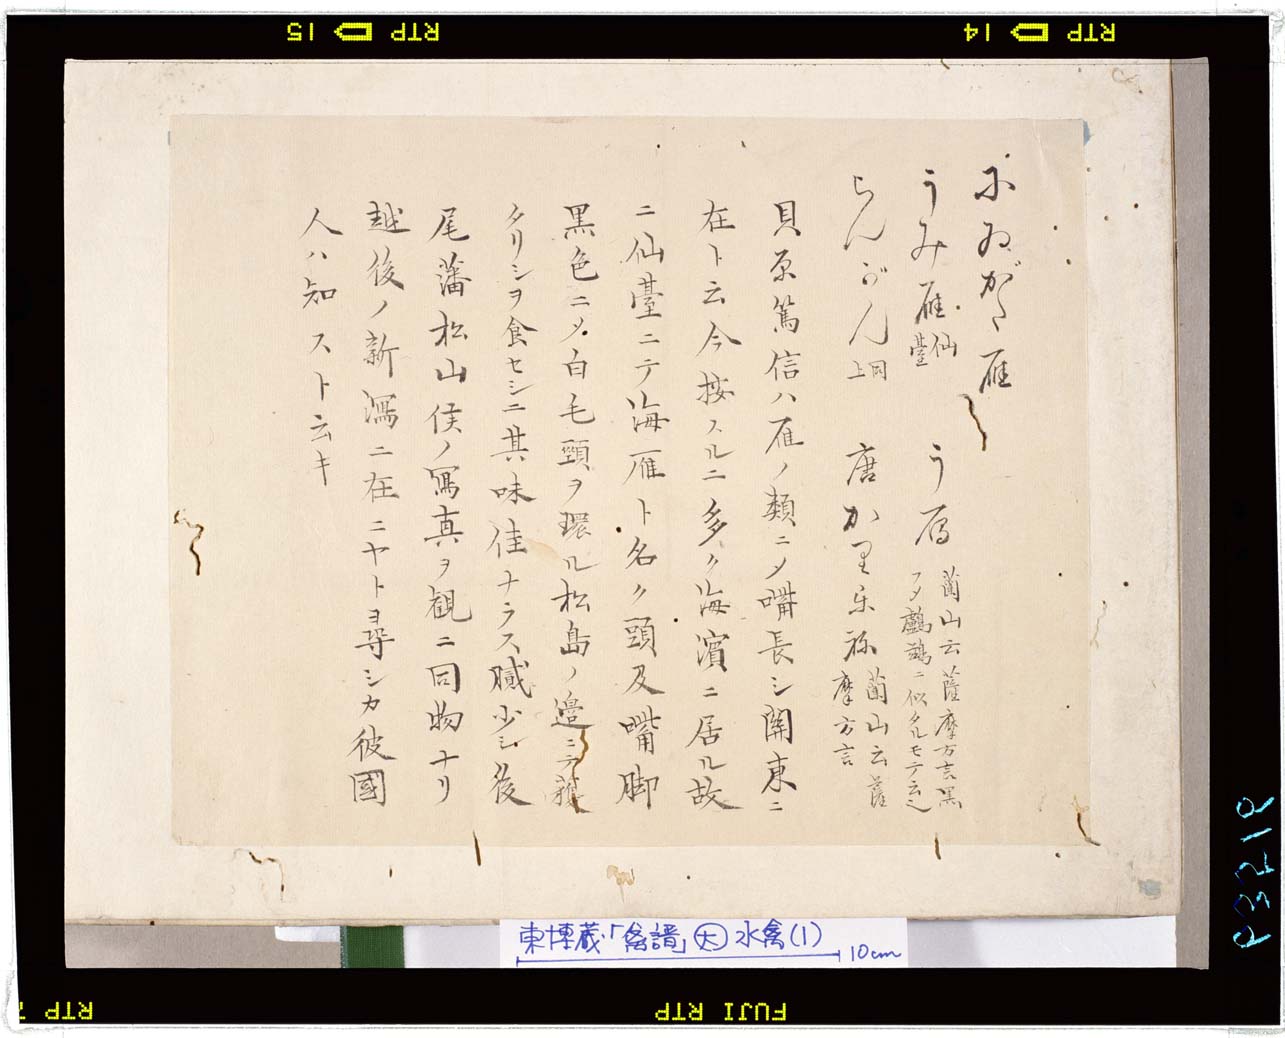 にゐがた雁
うみ雁 仙臺 う雁 蘭山云薩摩方言黒
フメ鸕鷀ニ似タルモテ云之
らんがん 同上 唐かり 蘭山云薩
摩方言
貝原篤信ハ雁ノ類ニメ嘴長シ関東ニ
在ト云今按スルニ多ク海濱ニ居ル故
ニ仙臺ニテ海雁ト名ク頭及嘴脚
黒色ニメ白毛頸ヲ環ル松島ノ邉ニテ獲
タリシヲ食セシニ其味佳ナラス膩少シ後
尾藩松山侯ノ冩真ヲ観ニ同物ナリ
越後ノ新潟ニ在ニヤトヨ尋シカ彼國
人ハ知スト云キ
東博蔵「禽譜」大 水禽(1)
10cm
RTP 15
RTP 14
RTP
FUJI RTP
P3218